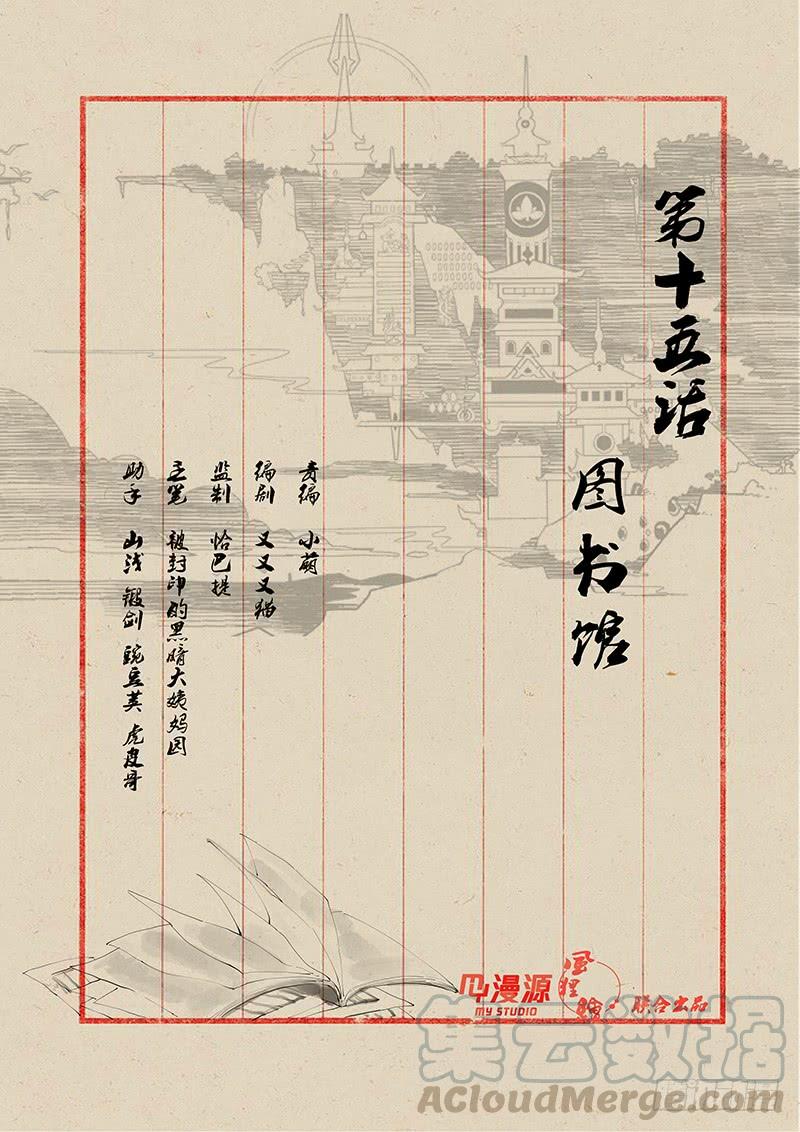 第十五话
图书馆
责编 小萌
编剧 又又又猫
监制 恰巴提
主笔 被封印的黑暗大姨妈园
助手 山浅 锻剑 豌豆荚 虎皮哥
漫源
MY STUDIO
風狸
联合出品
集云数据
ACloudMerge.com